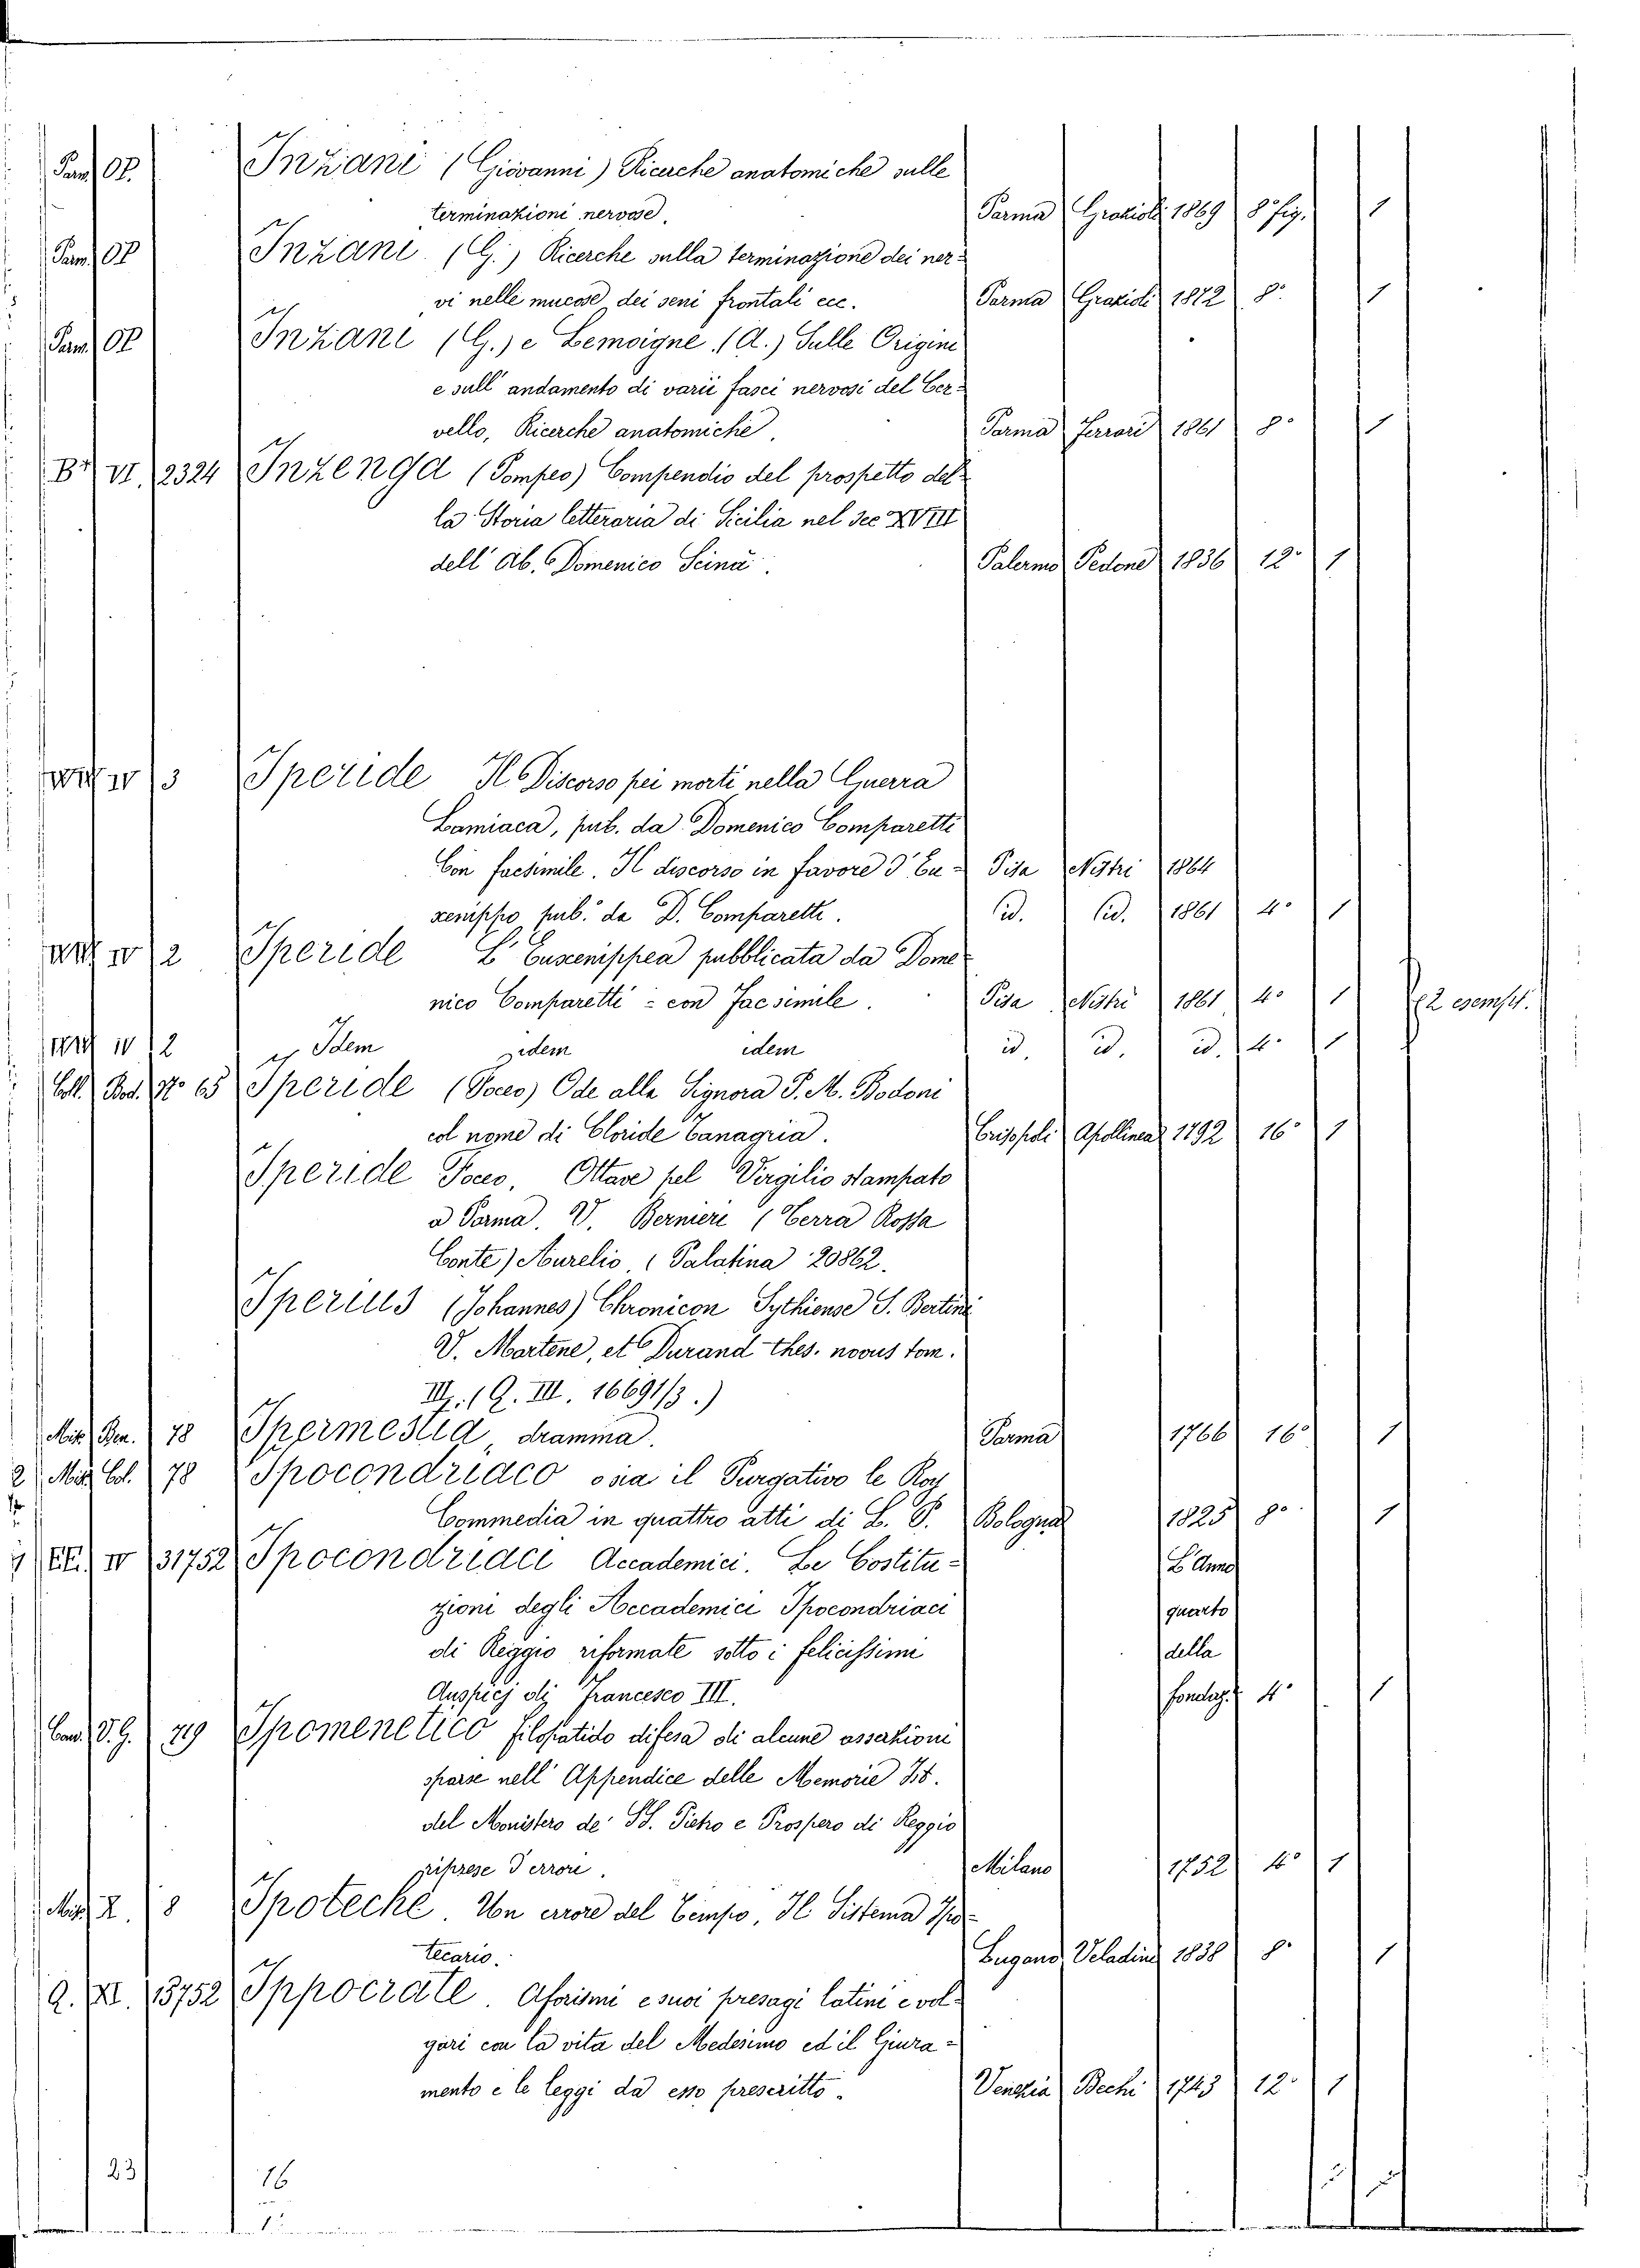 Parm. OP. Inzani (Giovanni) Ricerche anatomiche sulle
terminazioni nervose. Parma Grazioli 1869 8° fig. 1
Parm. OP Inzani (G.) Ricerche sulla terminazione dei ner-
vi nelle mucose dei seni frontali ecc. Parma Grazioli 1872 8° 1
Parm. OP Inzani (G.) e Lemoigne (A.) Sulle Origini
e sull' andamento di varii fasci nervosi del Cer-
vello, Ricerche anatomiche. Parma Ferrari 1861 8° 1
VI. 2324 Inzenga (Pompeo) Compendio del prospetto del-
la Storia letteraria di Sicilia nel sec XVIII
dell' Ab. Domenico Scinà. Palermo Pedone 1836 12° 1
IV 3 Iperide Il Discorso pei morti nella Guerra
Lamiaca, pub. da Domenico Comparetti
Con facsimile. Il discorso in favore d' Eu- Pisa Nistri 1864
xenippo pub. da D. Comparetti. id. id. 1861 4° 1
IV 2 Iperide L' Euscenippea pubblicata da Dome-
nico Comparetti = con Facsimile. Pisa Nistri 1861 4° 1 2 esempl.
IV 2 Idem idem idem id. id. id. 4° 1
Coll. Bod. N° 65 Iperide (Poceo) Ode alla Signora P. M. Bodoni
col nome di Cloride Tanagria. Crisopoli Apollinea 1792 16° 1
Iperide Foceo, Ottave pel Virgilio stampato
a Parma. V. Bernieri (Terra Rossa
Conte) Aurelio, (Palatina 20862.
Iperius (Johannes) Chronicon Sythiense S. Bertini
V. Martene, et Durand thes. novus tom.
III. (Q. III. 16691/3.)
Mis. Ben. 78 Ipermestra, dramma. Parma 1766 16° 1
2 Mis. Col. 78 Ipocondriaco osia il Purgativo le Roy
Commedia in quattro atti di L. P. Bologna 1825 8° 1
IV 31752 Ipocondriaci Accademici. Le Costitu- L' Anno
zioni degli Accademici Ipocondriaci quarto
di Reggio riformate sotto i felicissimi della
Auspicj di Francesco III. fondaz. 4° 1
Cam. V.G. 719 Ipomenetico Filopatido difesa di alcune asserzioni
sparse nell' Appendice delle Memorie Ist.
del Monistero de' SS. Pietro e Prospero di Reggio
riprese d'errori. Milano 1752 4° 1
Misc. 2. 8 Ipoteche. Un errore del Tempo, Il Sistema Ipo-
tecario. Lugano Veladini 1838 8° 1
Q. XI. 15752 Ippocrate. Aforismi e suoi presagi latini e vol-
gari con la vita del Medesimo ed il Giura-
mento e le leggi da esso prescritto. Venezia Bechi 1743 12° 1
23 16